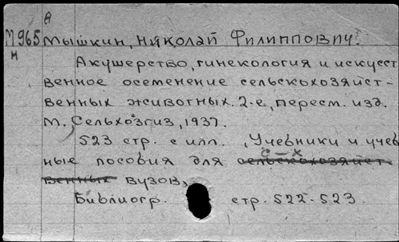 А
М965 Мышкин, Николай Филиппович.
Н
Акушерство, гинекология и искусст
венное осеменение сельскохозяйст-
венных животных. 2-е, пересм. изд.
М. Сельхозгиз, 1937.
523 стр. с илл. (Учебники и учеб
с-х
ные пособия для сельскохозяйст-
венных вузов)
Библиогр. стр. 522-523